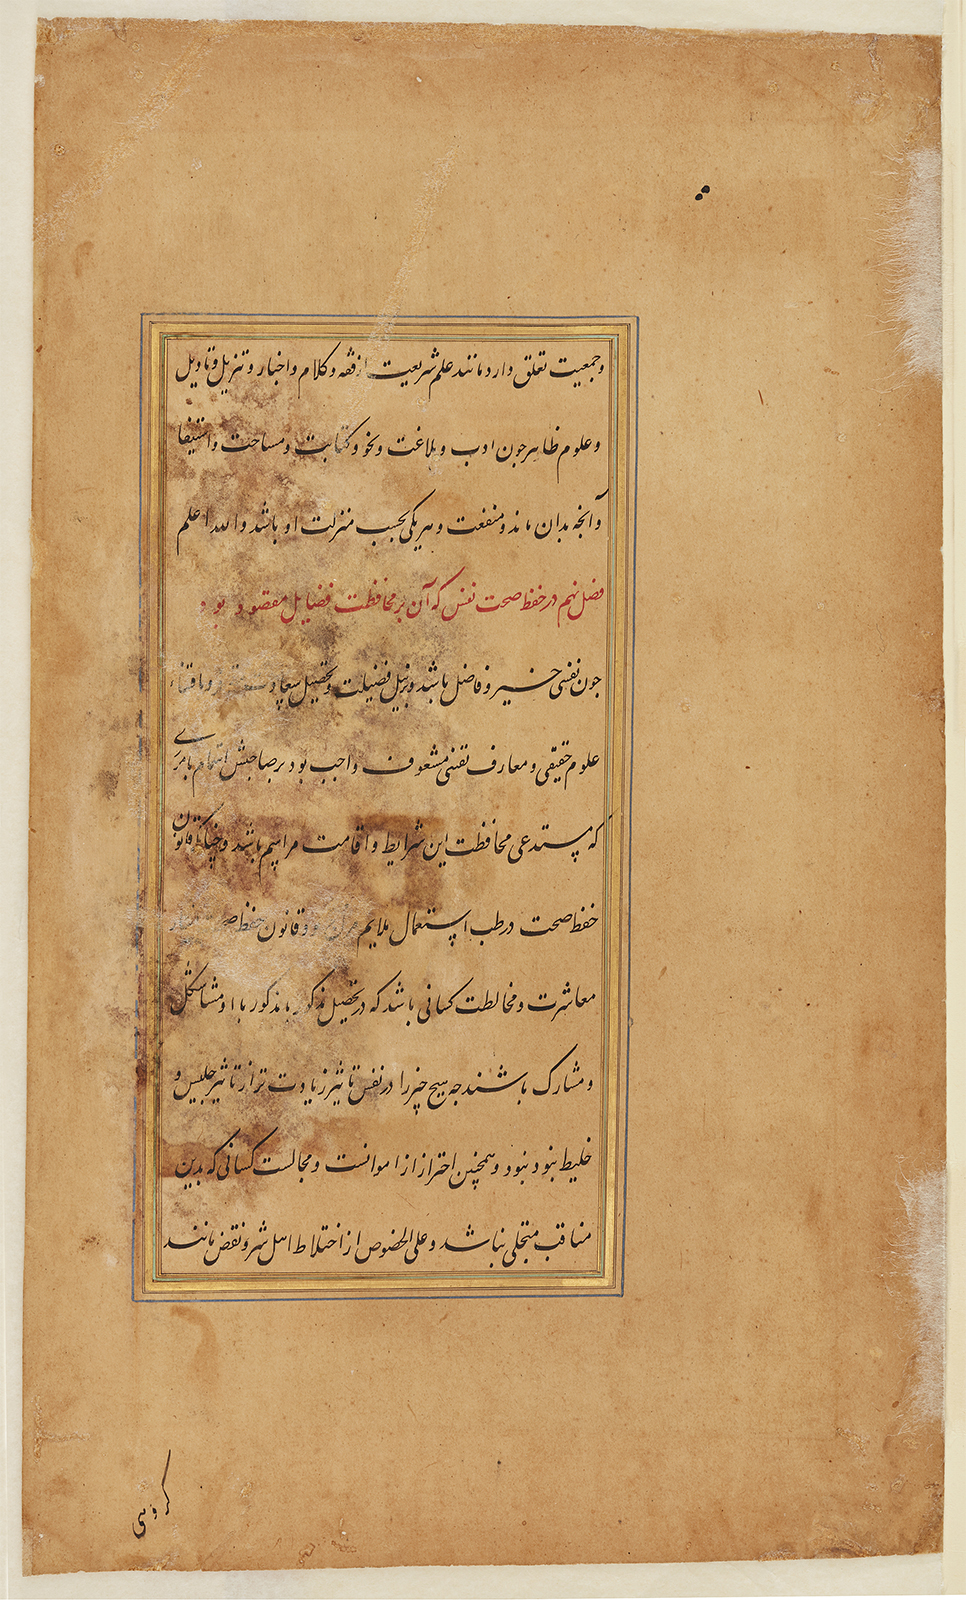 وجمعیت تعلق دارد مانند علم شریعت از فقه و کلام و اخبار و تنزیل و تاویل
و علوم ظاهر جون ادب و بلاغت و نحو و کتابت و مساحت و استیفا
و آنچه بدان ماند و منفعت و هر یکی بحسب منزلت او باشد و الله اعلم
فصل نهم در حفظ صحت نفس که آن بر محافظت فضایل مقصور بود
جون نفس خیر و فاضل باشد و بر نیل فضیلت و تحصیل سعادت و اقتناء
علوم حقیقی و معارف یقینی مشعوف واجب بود بر صاحبش اهتمام بامری
که مستدعی محافظت این شرایط و اقامت مراسم باشد و چنانکه قانون
حفظ صحت در طب استعمال ملایم و قانون حفظ
معاشرت و مخالطت کسانی باشد که در تحصیل مذکور با او مشاکل
و مشارک باشند جه هیچ چیز را در نفس تاثیر زیادت تر از تاثیر جلیس و
خلیط نبود و همچنین احتراز از موانست و مجالست کسانی که بدین
مناقب متجلی نباشد و علی الخصوص از اختلاط اهل شر و نقص مانند
کروهی